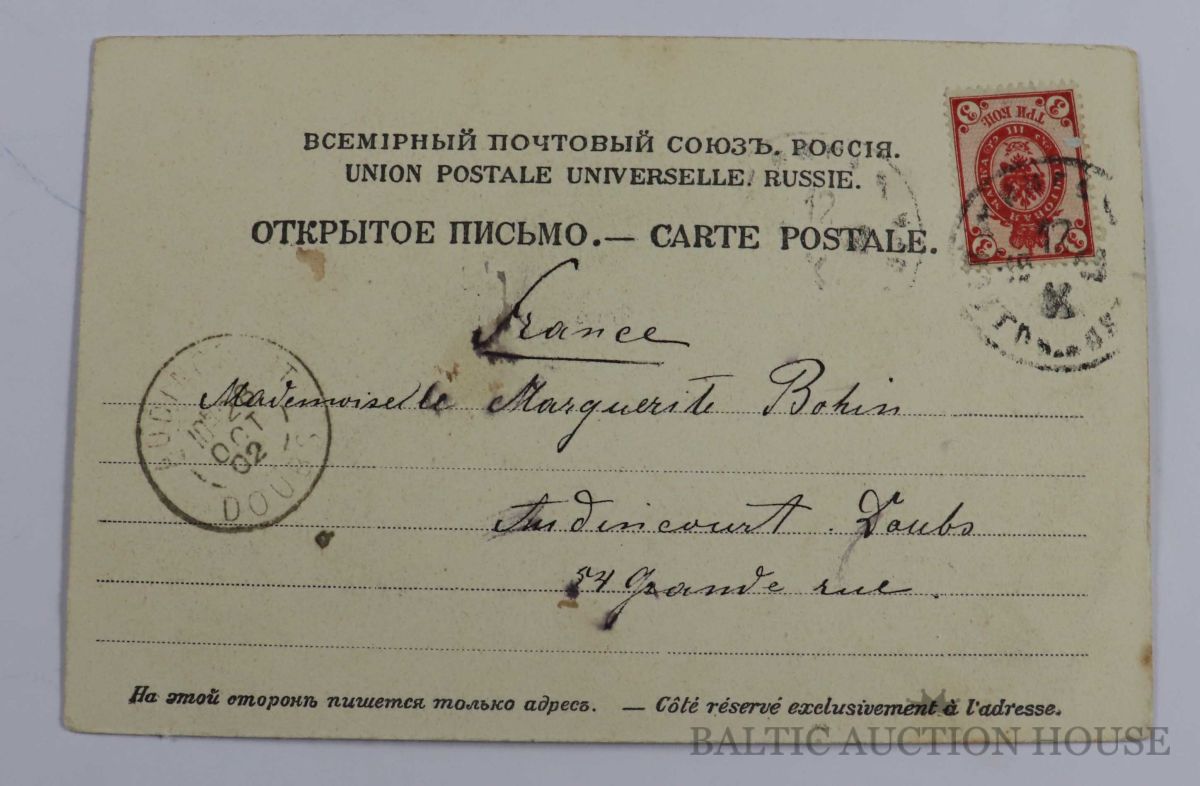 ВСЕМІРНЫЙ ПОЧТОВЫЙ СОЮЗЪ. РОССІЯ.
UNION POSTALE UNIVERSELLE. RUSSIE.
ОТКРЫТОЕ ПИСЬМО.— CARTE POSTALE.
3 ТРИ КОП. 3
МАРКА
3 3
12
12
France
Mademoiselle Marguerite Bohin
OCT
02
DOUBS
Audincourt. Doubs
54 Grande rue.
На этой сторонѣ пишется только адресъ. — Côté réservé exclusivement à l'adresse.
BALTIC AUCTION HOUSE